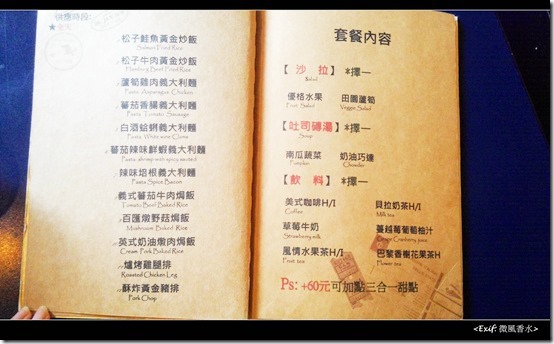 供應時段:
★
松子鮭魚黃金炒飯
Salmon Fried Rice
松子牛肉黃金炒飯
Hamburg Beef Fried Rice
蘆筍雞肉義大利麵
Pasta Asparagus Chicken
蕃茄香腸義大利麵
Pasta Tomato Sausage
白酒蛤蜊義大利麵
Pasta White wine Clams
蕃茄辣味鮮蝦義大利麵
Pasta shrimp with spicy sauted
辣味培根義大利麵
Pasta Spice Bacon
義式蕃茄牛肉焗飯
Tomato Beef Baked Rice
百匯燉野菇焗飯
Mushroom Baked Rice
英式奶油燉肉焗飯
Cream Pork Baked Rice
爐烤雞腿排
Roasted Chicken Leg
酥炸黃金豬排
Pork Chop
套餐內容
【 沙 拉】 *擇一
Salad
優格水果 田園蘆筍
Fruit Salad Veggie Salad
【吐司磚湯】 *擇一
Soup
南瓜蔬菜 奶油巧達
Pumpkin Chowder
【飲 料】 *擇一
美式咖啡H/I 貝拉奶茶H/I
Coffee Milk tea
草莓牛奶 蔓越莓葡萄柚汁
Strawberry milk Grape Cranberry juice
風情水果茶H/I 巴黎香榭花果茶H
Fruit tea Flower tea
Ps: +60元可加點三合一甜點
<Exif: 微風香水>